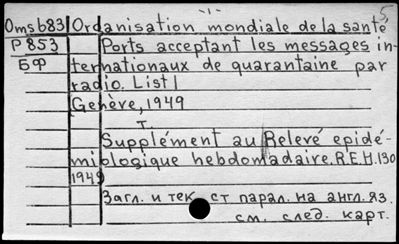 5
Oms683 Organisation mondiale de la santé
P853 Ports acceptant les messages in-
БФ ternationaux de quarantaine par
radio. List 1
Genève, 1949
T.
Supplément au Relevé epidé-
miologique hebdomadaire. R.E.H. 130
1949
Загл. и текст парал. на англ. яз.
см. след. карт.